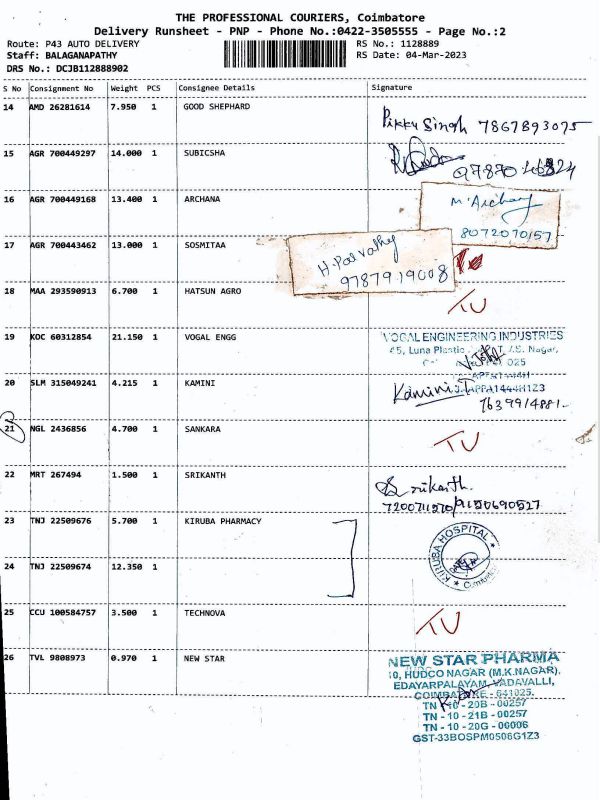 THE PROFESSIONAL COURIERS, Coimbatore
Delivery Runsheet - PNP - Phone No.:0422-3505555 - Page No.:2
Route: P43 AUTO DELIVERY RS No.: 1128889
Staff: BALAGANAPATHY RS Date: 04-Mar-2023
DRS No.: DCJB112888902
S No Consignment No Weight PCS Consignee Details Signature
14 AMD 26281614 7.950 1 GOOD SHEPHARD
Pikku Singh 7867893075
15 AGR 700449297 14.000 1 SUBICSHA
16 AGR 700449168 13.400 1 ARCHANA
M. Archany
8072070157
17 AGR 700443462 13.000 1 SOSMITAA
H. Parvathy
9787919008
18 MAA 293590913 6.700 1 HATSUN AGRO
TU
19 KOC 60312854 21.150 1 VOGAL ENGG
VOGAL ENGINEERING INDUSTRIES
45, Luna Plastic Nagar,
025
20 SLM 315049241 4.215 1 KAMINI
Kamini.T
7639914881.
21 NGL 2436856 4.700 1 SANKARA
TU
22 MRT 267494 1.500 1 SRIKANTH
Srikanth.
7200711070/9150690527
23 TNJ 22509676 5.700 1 KIRUBA PHARMACY
KIRUBA HOSPITAL
24 TNJ 22509674 12.350 1
25 CCU 100584757 3.500 1 TECHNOVA
TU
26 TVL 9808973 0.970 1 NEW STAR
NEW STAR PHARMA
10, HUDCO NAGAR (M.K.NAGAR),
EDAYARPALAYAM, VADAVALLI,
COIMBATORE - 641025.
TN - 10 - 20B - 00257
TN - 10 - 21B - 00257
TN - 10 - 20G - 00006
GST-33BOSPM0506G1Z3